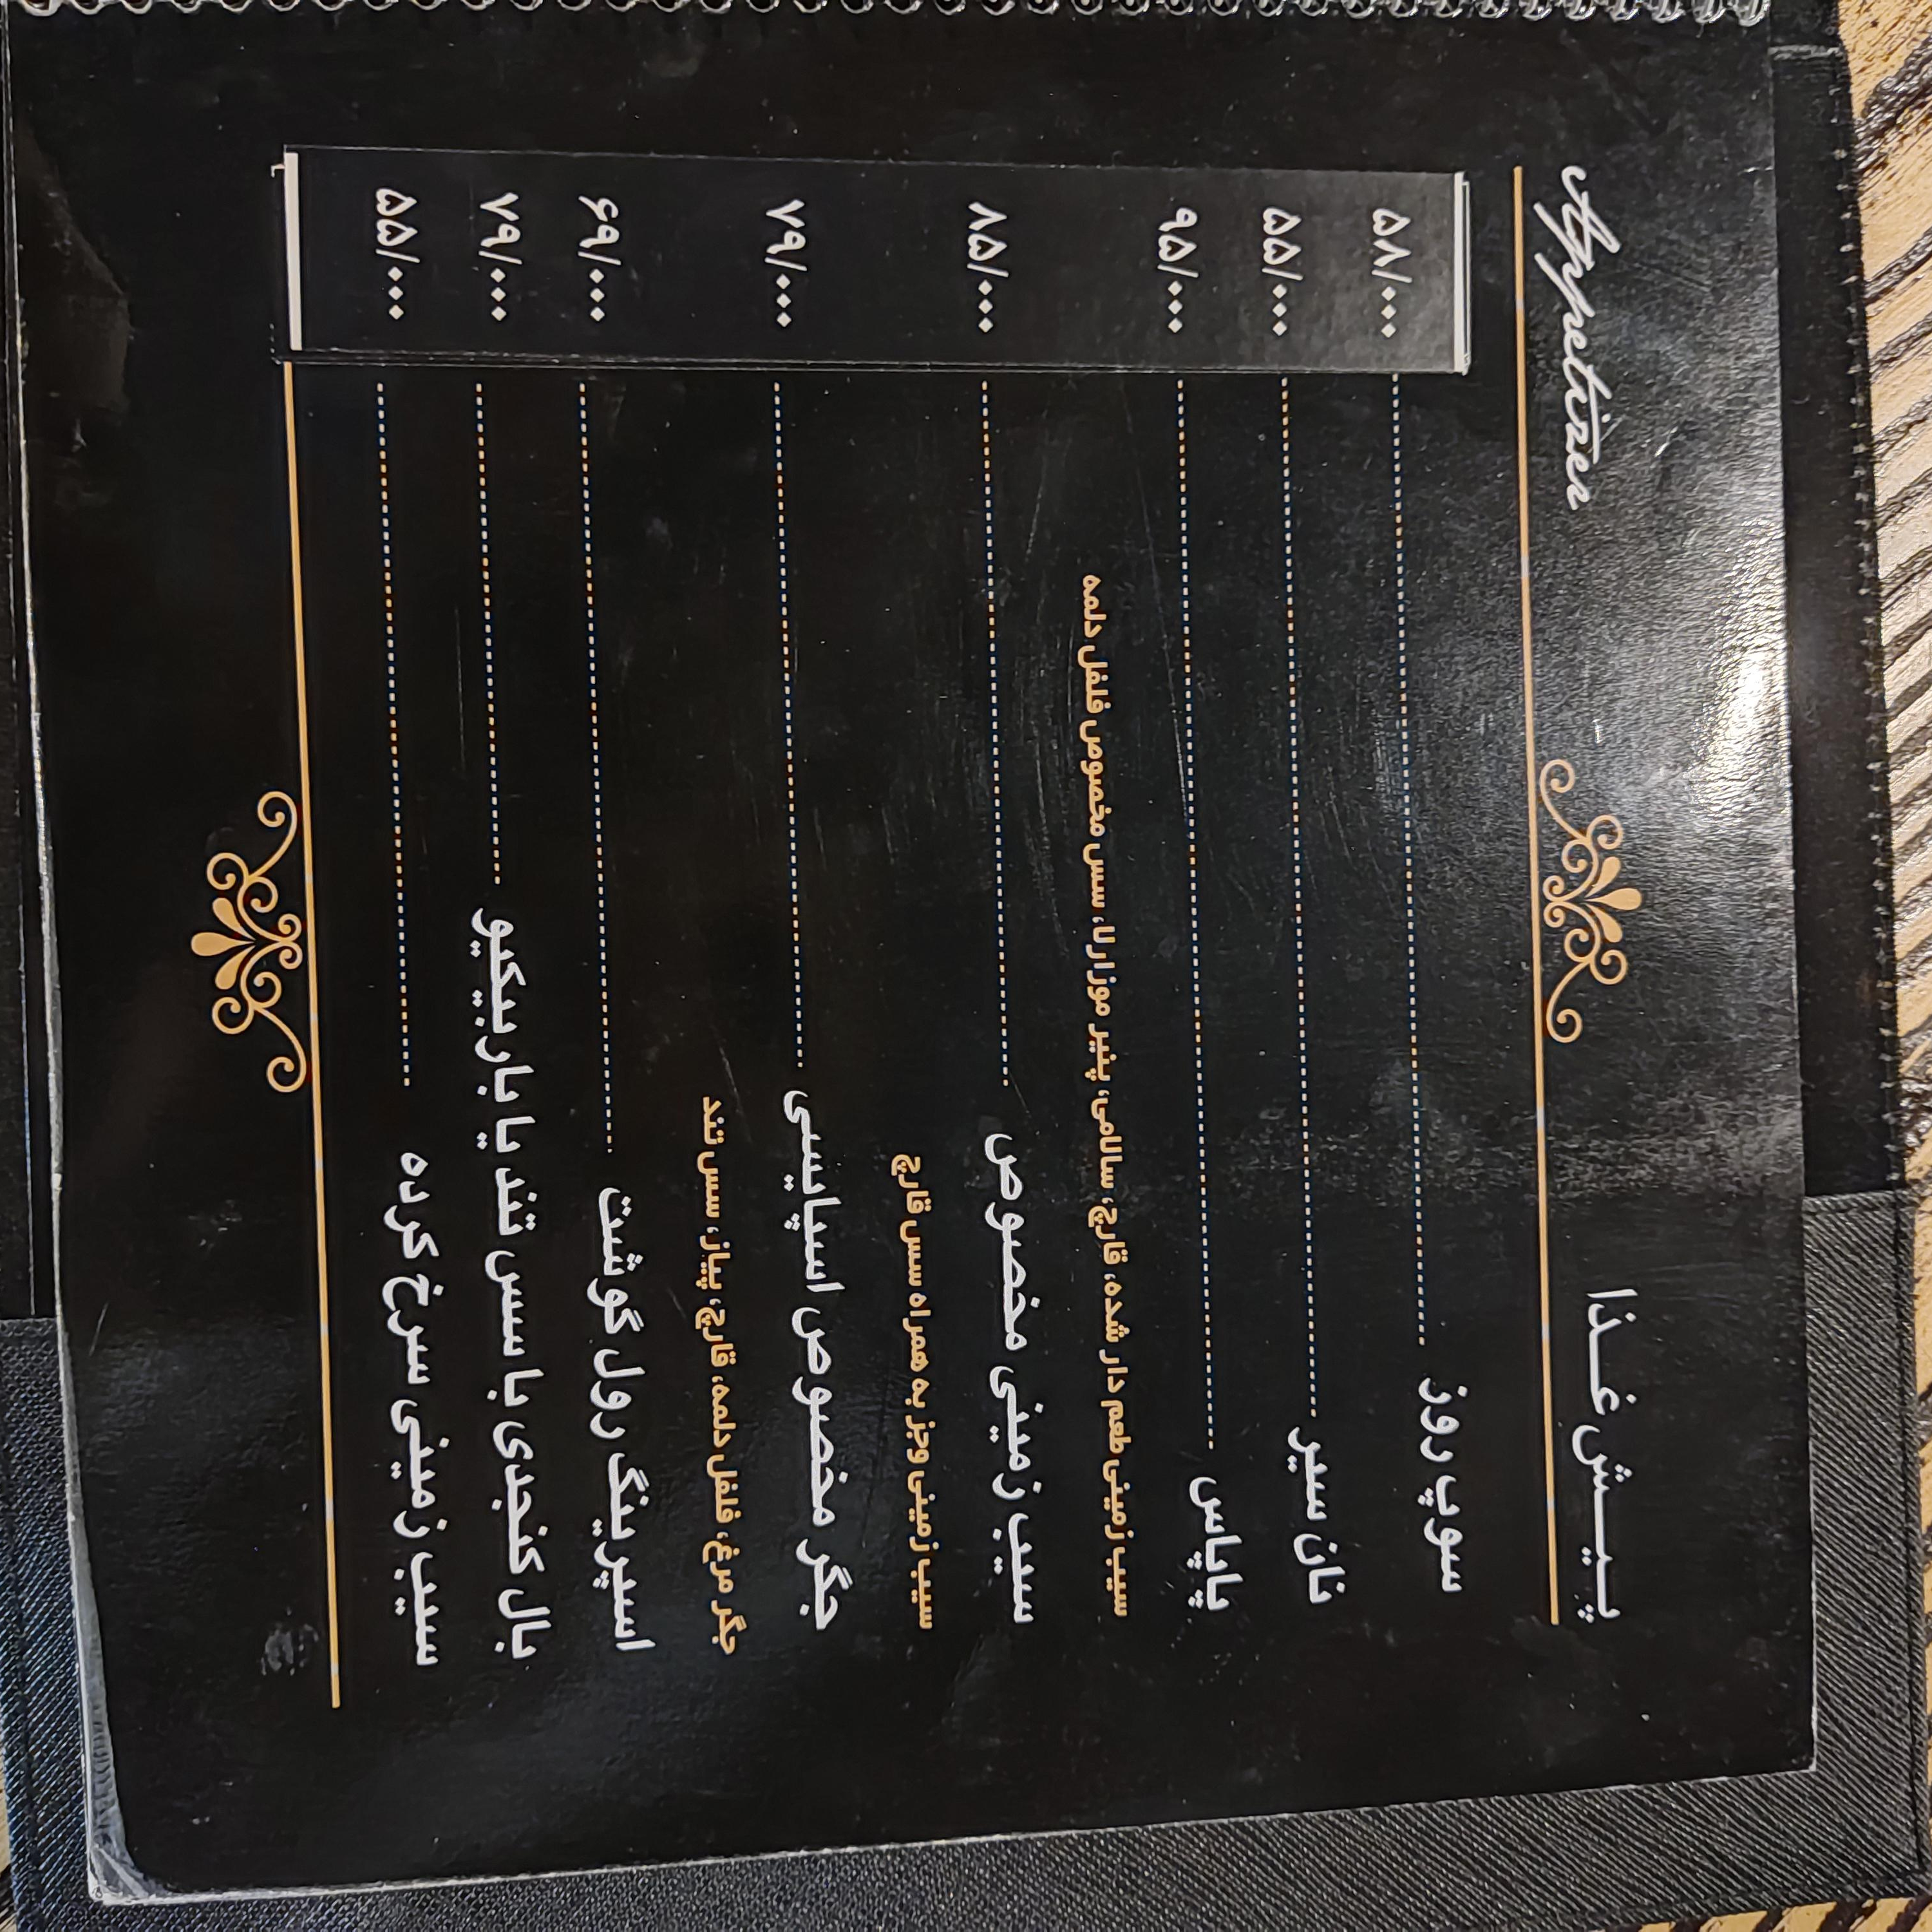 Appetizer پیش غذا
سوپ روز ۵۸/۰۰۰
نان سیر ۵۵/۰۰۰
پاپاس ۹۵/۰۰۰
سیب زمینی طعم دار شده، قارچ، سالامی، پنیر موزارلا، سس مخصوص فلفل دلمه
سیب زمینی مخصوص ۸۵/۰۰۰
سیب زمینی وجز به همراه سس قارچ
جگر مخصوص اسپایسی ۷۹/۰۰۰
جگر مرغ، فلفل دلمه، قارچ، پیاز، سس تند
اسپرینگ رول گوشت ۶۹/۰۰۰
بال کنجدی با سس تند یا باربیکیو ۷۹/۰۰۰
سیب زمینی سرخ کرده ۵۵/۰۰۰